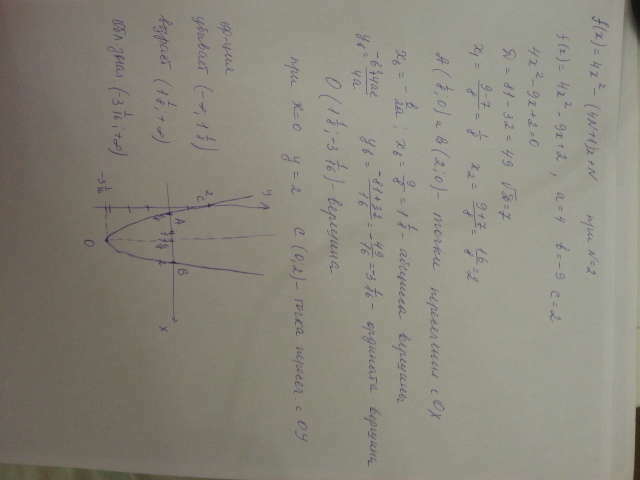 f(x) = 4x² - (4N+1)x + N при N=2
f(x) = 4x² - 9x + 2, a=4 b=-9 c=2
4x² - 9x + 2 = 0
D = 81 - 32 = 49 √D = 7
x₁ = (9-7)/8 = 1/4 x₂ = (9+7)/8 = 16/8 = 2
A(1/4, 0) и B(2; 0) - точки пересечения с OX
x₆ = -b/2a; x₆ = 9/8 = 1 1/8 - абсцисса вершины
y₆ = (-b²+4ac)/4a y₆ = (-81+32)/16 = -49/16 = -3 1/16 - ордината вершины
O(1 1/8; -3 1/16) - вершина
при x=0 y=2 C(0,2) - точка пересеч с OY
убывает (-∞, 1 1/8)
возраст (1 1/8; +∞)
(-3 1/16; +∞)
y
2
C
A
B
2
x
-3 1/16
O